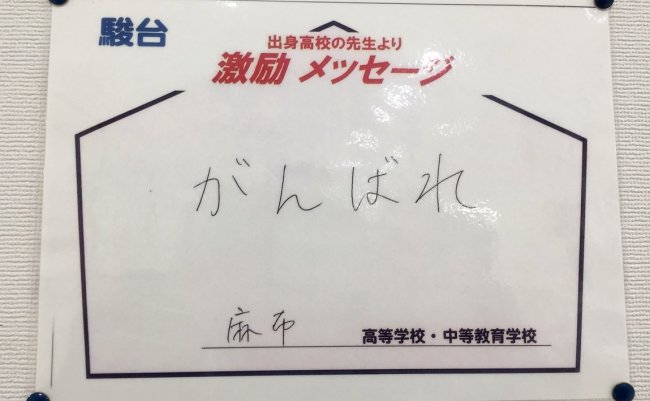 駿台
出身高校の先生より
激励 メッセージ
がんばれ
麻布 高等学校・中等教育学校